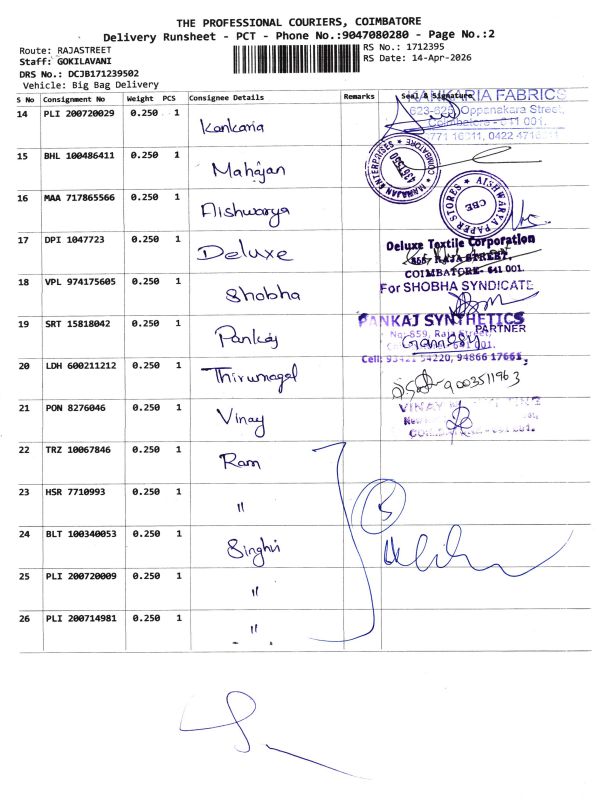 THE PROFESSIONAL COURIERS, COIMBATORE
Delivery Runsheet - PCT - Phone No.:9047080280 - Page No.:2
Route: RAJASTREET
RS No.: 1712395
Staff: GOKILAVANI
RS Date: 14-Apr-2026
DRS No.: DCJB171239502
Vehicle: Big Bag Delivery
S No Consignment No Weight PCS Consignee Details Remarks Seal & Signature
KANKARIA FABRICS
623-625, Oppanakara Street,
Coimbatore - 641 001.
14 PLI 200720029 0.250 1 Kankaria
15 BHL 100486411 0.250 1 Mahajan
MAHAJAN ENTERPRISES COIMBATORE
16 MAA 717865566 0.250 1 Aishwarya
AISHWARYA PAPER STORES
CBE
17 DPI 1047723 0.250 1 Deluxe
Deluxe Textile Corporation
RAJA STREET,
COIMBATORE- 641 001.
18 VPL 974175605 0.250 1 Shobha
For SHOBHA SYNDICATE
PARTNER
19 SRT 15818042 0.250 1 Pankaj
PANKAJ SYNTHETICS
No: 859, Raja Street,
641 001.
Cell: 93421 54220, 94866 17661,
20 LDH 600211212 0.250 1 Thirumagal
9003511963
21 PON 8276046 0.250 1 Vinay
VINAY
22 TRZ 10067846 0.250 1 Ram
23 HSR 7710993 0.250 1 "
24 BLT 100340053 0.250 1 Singhvi
25 PLI 200720009 0.250 1 "
26 PLI 200714981 0.250 1 "